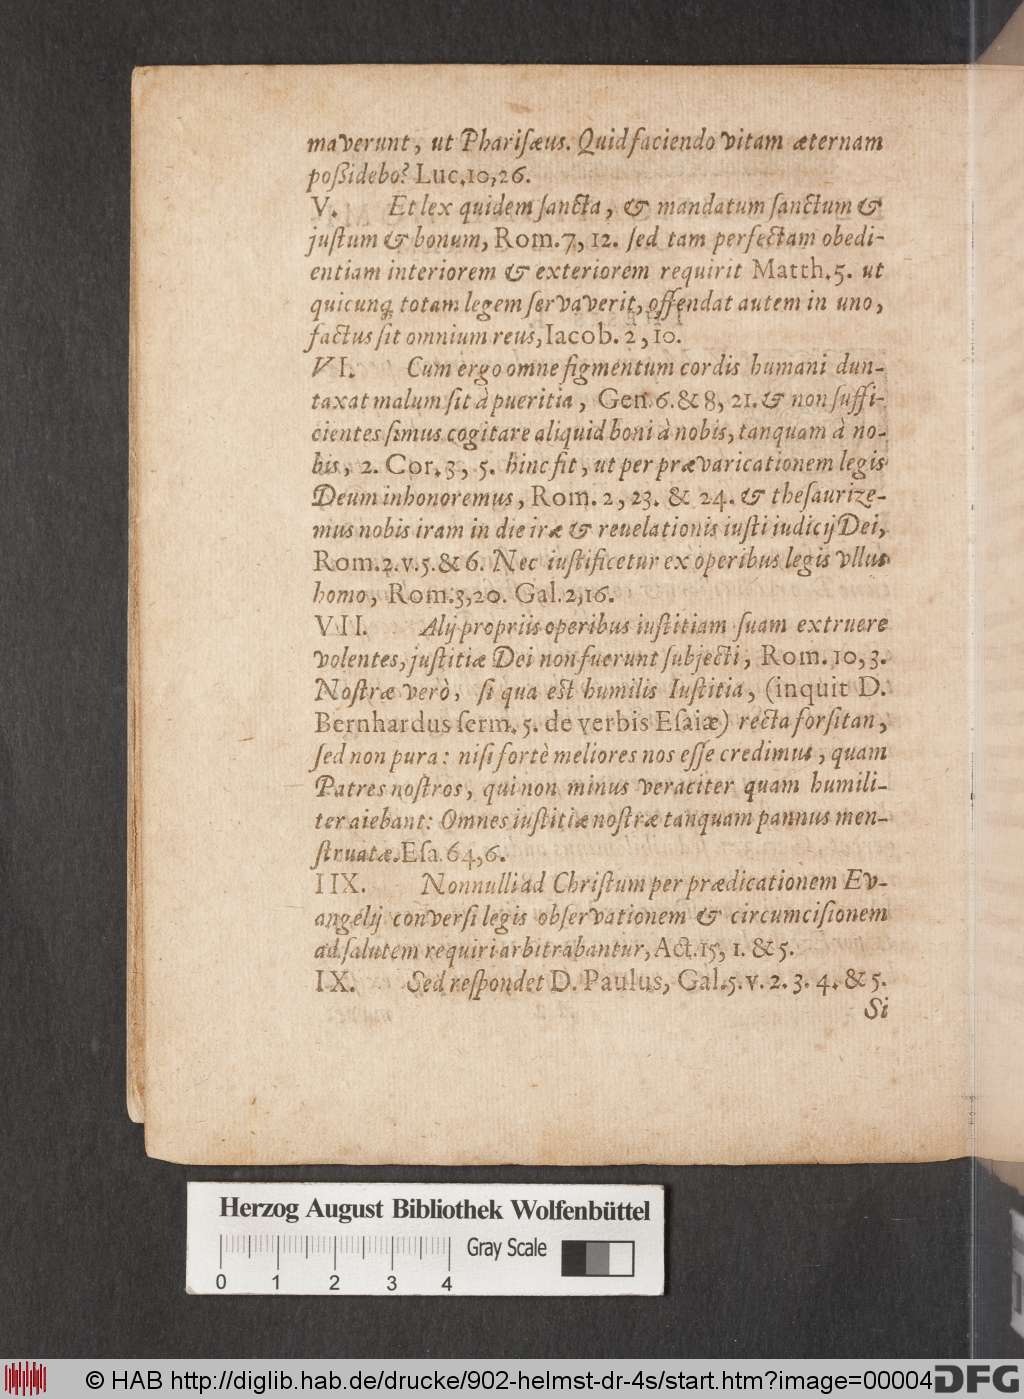 maverunt, ut Phariſæus. Quid faciendo vitam æternam
poßidebo? Luc.10,26.
V. Et lex quidem ſancta, & mandatum ſanctum &
juſtum & bonum, Rom.7, 12. ſed tam perfectam obedi-
entiam interiorem & exteriorem requirit Matth.5. ut
quicunq; totam legem ſervaverit, offendat autem in uno,
factus ſit omnium reus, Iacob. 2, 10.
VI. Cum ergo omne figmentum cordis humani dun-
taxat malum ſit à pueritia, Gen.6.&8, 21. & non ſuffi-
cientes ſimus cogitare aliquid boni à nobis, tanquam à no-
bis, 2. Cor.3, 5. hinc fit, ut per prævaricationem legis
Deum inhonoremus, Rom. 2, 23. & 24. & theſaurize-
mus nobis iram in die iræ & reuelationis iuſti iudicij Dei,
Rom.2.v.5.&6. Nec iuſtificetur ex operibus legis vllus
homo, Rom.3,20. Gal.2,16.
VII. Alij propriis operibus iuſtitiam ſuam extruere
volentes, juſtitiæ Dei non fuerunt ſubjecti, Rom.10,3.
Noſtræ verò, ſi qua eſt humilis Iuſtitia, (inquit D.
Bernhardus ſerm. 5. de verbis Eſaiæ) recta forſitan,
ſed non pura: niſi fortè meliores nos eſſe credimus, quam
Patres noſtros, qui non minus veraciter quam humili-
ter aiebant: Omnes iuſtitiæ noſtræ tanquam pannus men-
ſtruatæ. Eſa 64,6.
IIX. Nonnulli ad Chriſtum per prædicationem Ev-
angelij converſi legis obſervationem & circumciſionem
ad ſalutem requiri arbitrabantur, Act.15, 1. & 5.
IX. Sed reſpondet D. Paulus, Gal.5.v. 2. 3. 4. & 5.
Si
Herzog August Bibliothek Wolfenbüttel
Gray Scale
0 1 2 3 4
© HAB http://diglib.hab.de/drucke/902-helmst-dr-4s/start.htm?image=00004
DFG